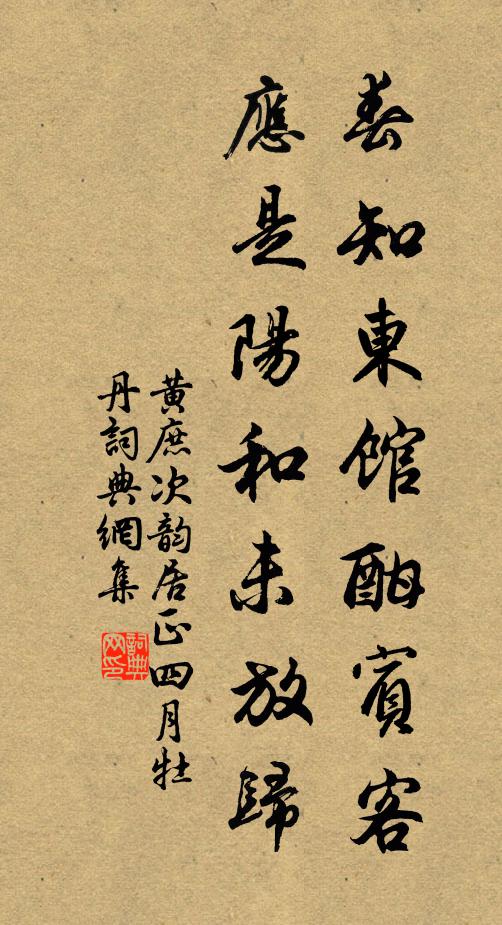 春知東館酣賓客
應是陽和未放歸
黃庶次韵居正四月牡
丹詞典網集
詞典
网印